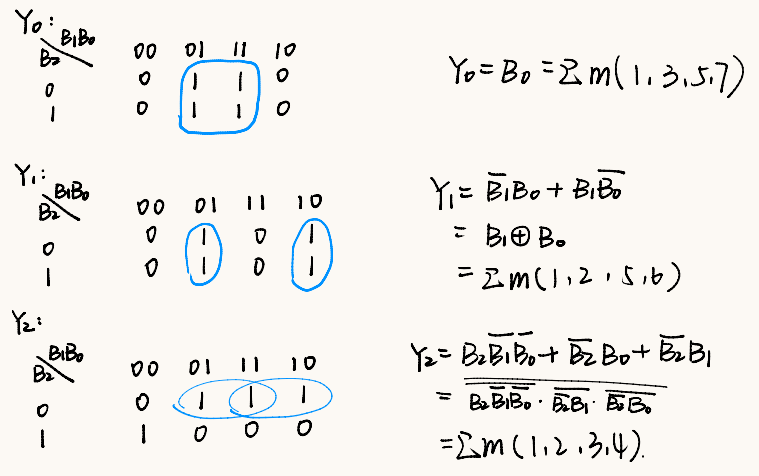 Y₀:
B₁B₀
B₂ 00 01 11 10
0 0 1 1 0
1 0 1 1 0
Y₀ = B₀ = Σm(1,3,5,7)
Y₁:
B₁B₀
B₂ 00 01 11 10
0 0 1 0 1
1 0 1 0 1
Y₁ = B̅₁B₀ + B₁B̅₀
= B₁⊕B₀
= Σm(1,2,5,6)
Y₂:
B₁B₀
B₂ 00 01 11 10
0 0 1 1 1
1 1 0 0 0
Y₂ = B₂B̅₁B̅₀ + B̅₂B₀ + B̅₂B₁
= \overline{\overline{B₂B̅₁B̅₀} · \overline{B̅₂B₁} · \overline{B̅₂B₀}}
= Σm(1,2,3,4).